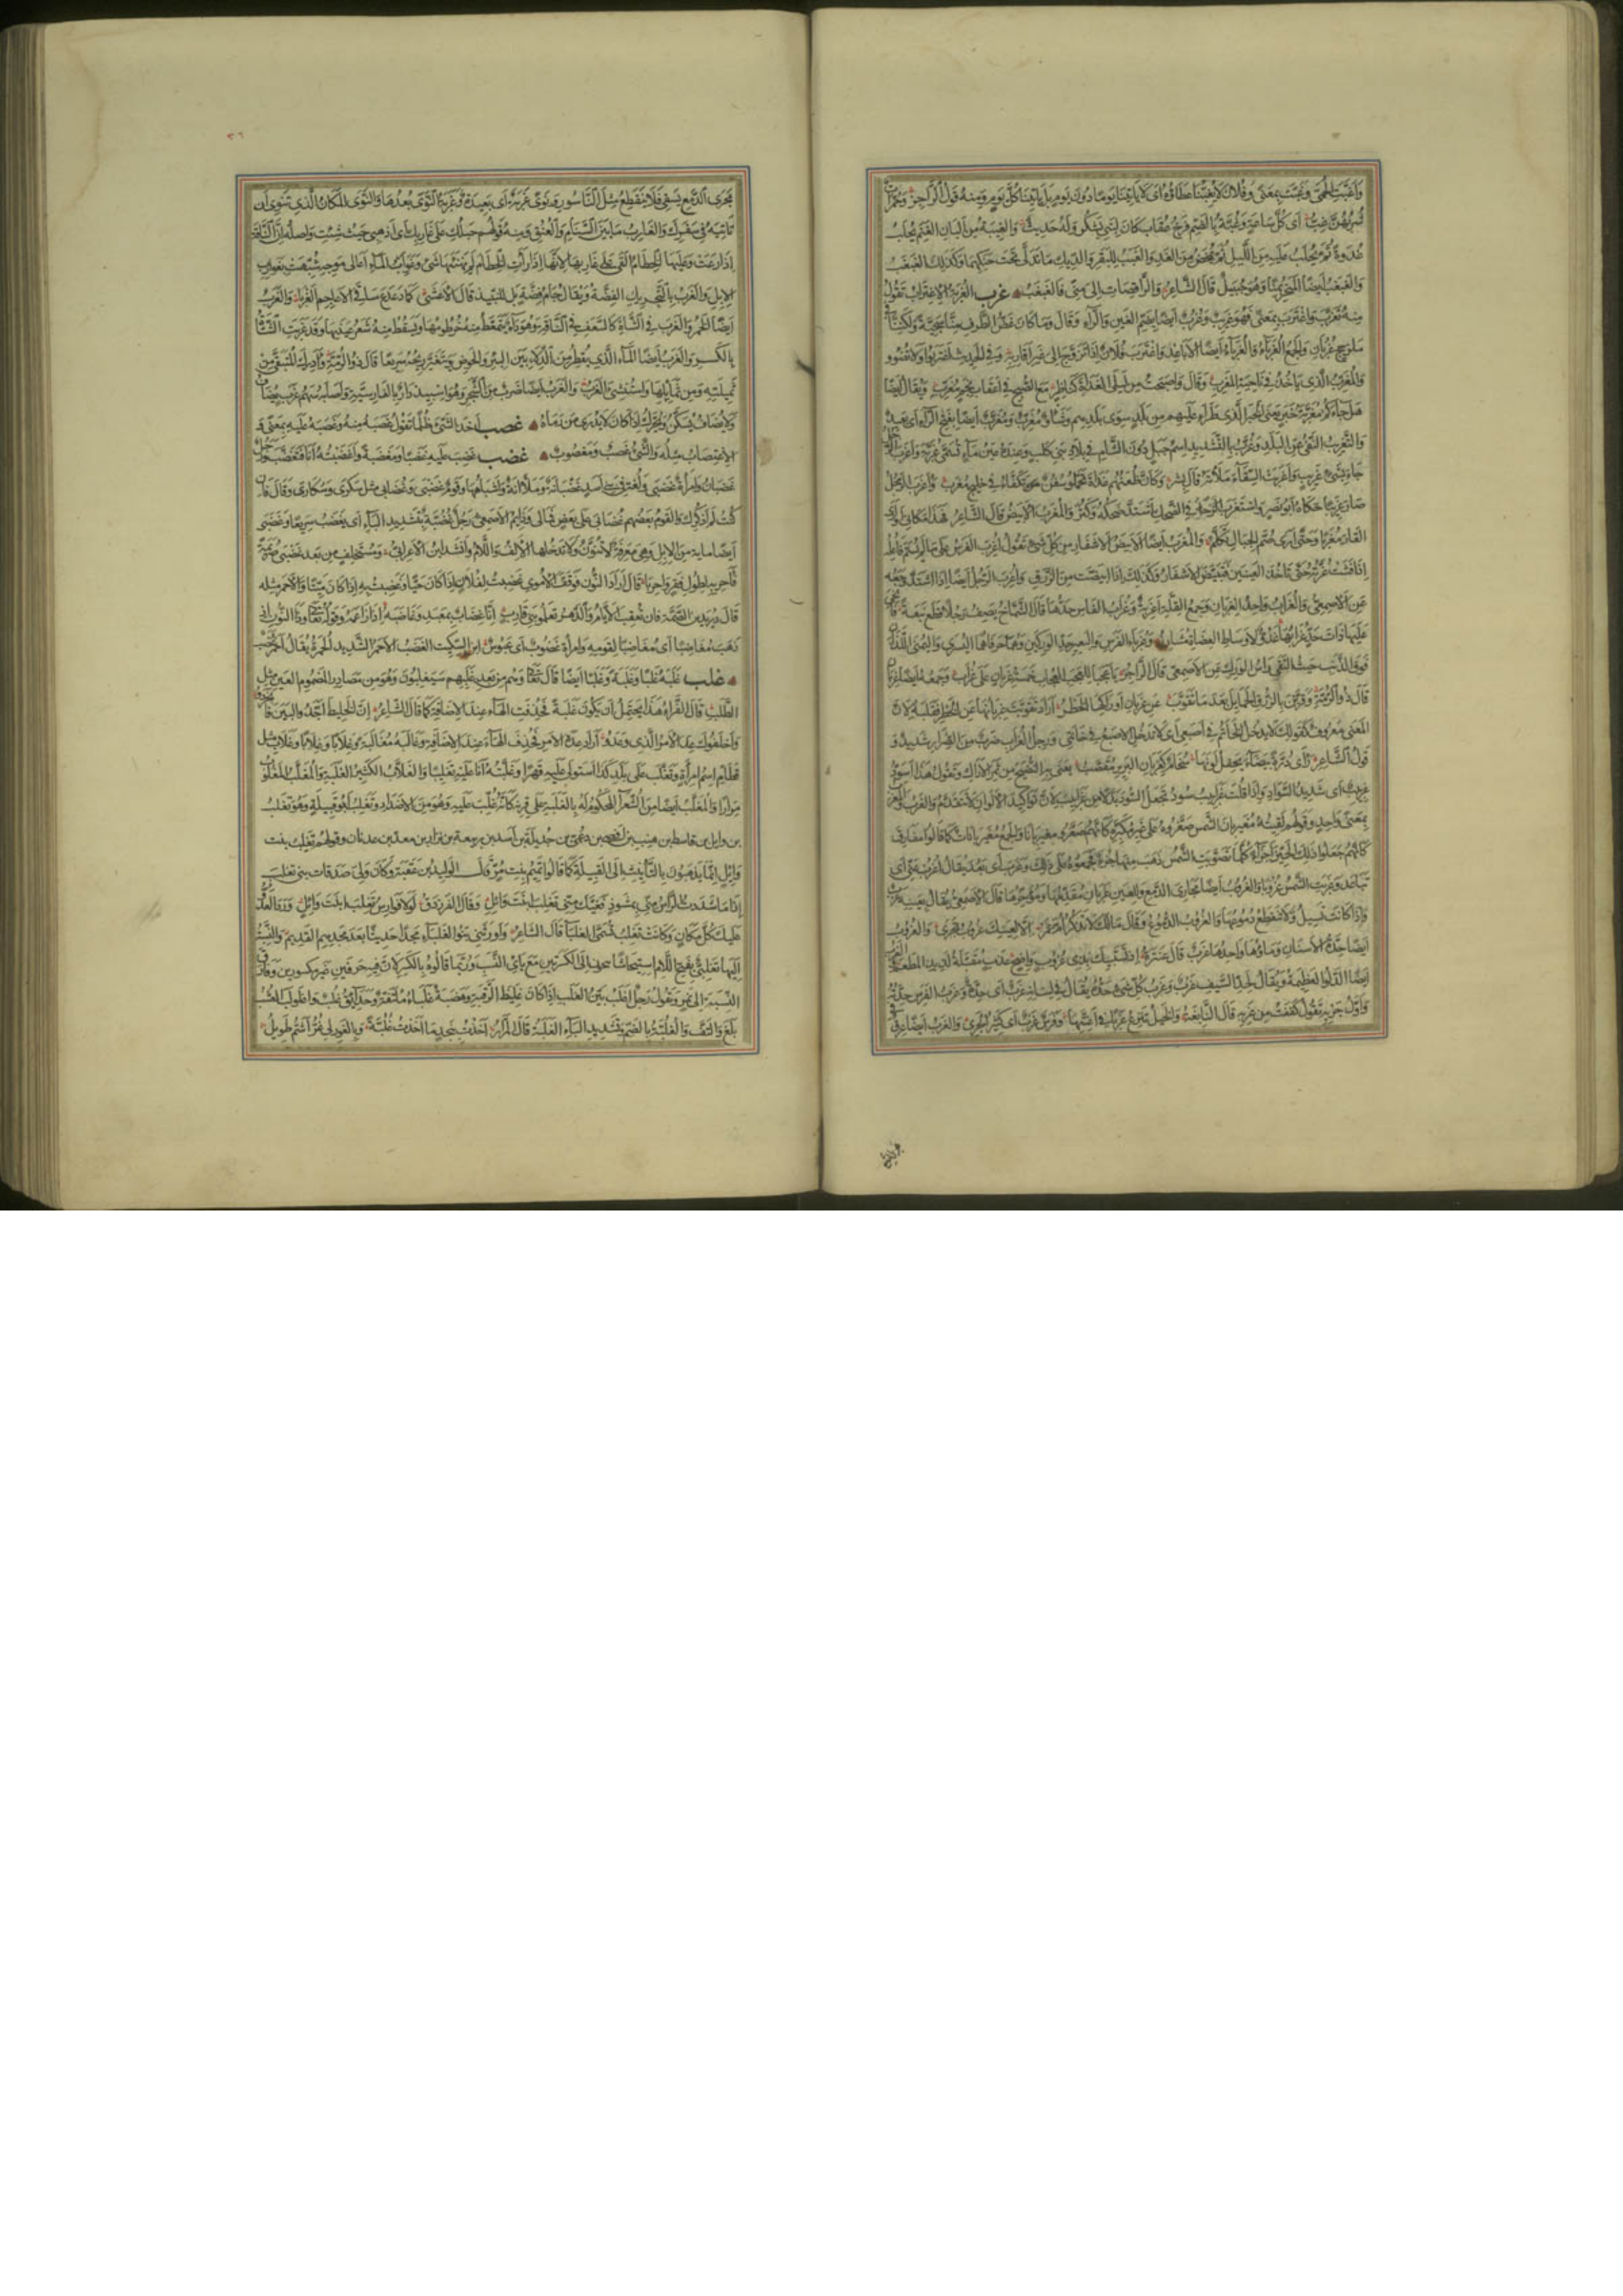 وَاَغَبَّتِ الْحُمَّى وَغَبَّتْ بِمَعْنًى وَفُلَانٌ لَا يُغِبُّنَا عَطَاؤُهُ اَىْ لَا يَأْتِينَا يَوْمًا دُونَ يَوْمٍ بَلْ يَأْتِينَا كُلَّ يَوْمٍ وَمِنْهُ قَوْلُ الرَّاجِزِ
اَىْ كُلَّ سَاعَةٍ وَغُبَّةُ بِالضَّمِّ فَرْخُ عُقَابٍ كَانَ لِبَنِى يَشْكُرَ وَلَهُ حَدِيثٌ وَالْغَبِيبَةُ مِنْ اَلْبَانِ الْغَنَمِ يُحْلَبُ
غُدْوَةً ثُمَّ يُحْلَبُ عَلَيْهِ مِنَ اللَّيْلِ ثُمَّ يُمْخَضُ مِنَ الْغَدِ وَالْغَبَبُ لِلْبَقَرِ وَالدِّيكِ مَا تَدَلَّى تَحْتَ حَنَكِهِمَا وَكَذَلِكَ الْغَبْغَبُ
وَالْغَبْغَبُ اَيْضًا الْمَنْحَرُ بِمِنًى وَهُوَ جُبَيْلٌ قَالَ الشَّاعِرُ وَالرَّاقِصَاتِ اِلَى مِنًى فَالْغَبْغَبِ غرب الْغُرْبَةُ الْاِغْتِرَابُ تَقُولُ
مِنْهُ تَغَرَّبَ وَاغْتَرَبَ بِمَعْنًى فَهُوَ غَرِيبٌ وَغُرُبٌ اَيْضًا بِضَمِّ الْغَيْنِ وَالرَّاءِ وَقَالَ وَمَا كَانَ غَضُّ الطَّرْفِ مِنَّا سَجِيَّةً وَلَكِنَّنَا
مَذْحِجٍ غُرُبَانِ وَالْجَمْعُ الْغُرَبَاءُ وَالْغُرَبَاءُ اَيْضًا الْاَبَاعِدُ وَاغْتَرَبَ فُلَانٌ اِذَا تَزَوَّجَ اِلَى غَيْرِ اَقَارِبِهِ وَفِى الْحَدِيثِ اغْتَرِبُوا وَلَا تُضْوُوا
وَالْمُغَرِّبُ الَّذِى يَأْخُذُ فِى نَاحِيَةِ الْمَغْرِبِ وَقَالَ وَاَصْبَحْتُ مِنْ لَيْلَى الْغَدَاةَ كَنَاظِرٍ مَعَ الصُّبْحِ فِى اَعْقَابِ نَجْمٍ مُغَرِّبِ وَيُقَالُ اَيْضًا
هَلْ جَاءَكُمْ مُغَرِّبَةُ خَبَرٍ يَعْنِى الْخَبَرَ الَّذِى طَرَأَ عَلَيْهِمْ مِنْ بَلَدٍ سِوَى بَلَدِهِمْ وَشَأْوٌ مُغَرِّبٌ وَمُغَرَّبٌ اَيْضًا بِفَتْحِ الرَّاءِ اَىْ بَعِيدٌ
وَالتَّغْرِيبُ النَّفْىُ عَنِ الْبَلَدِ وَغُرَّبٌ بِالتَّشْدِيدِ اِسْمُ جَبَلٍ دُونَ الشَّامِ فِى بِلَادِ بَنِى كَلْبٍ وَعِنْدَهُ عَيْنُ مَاءٍ تُسَمَّى غُرَّبَةَ وَاَغْرَبَ
جَاءَ بِشَىْءٍ غَرِيبٍ وَاَغْرَبْتُ السِّقَاءَ مَلَأْتُهُ قَالَ بِشْرٌ وَكَاَنَّ ظُعْنَهُمُ غَدَاةَ تَحَمَّلُوا سُفُنٌ تَكَفَّأُ فِى خَلِيجٍ مُغْرَبِ وَاَغْرَبَ الرَّجُلُ
صَارَ غَرِيبًا حَكَاهُ اَبُو نَصْرٍ وَاسْتَغْرَبَ الرَّجُلُ فِى الضَّحِكِ اشْتَدَّ ضَحِكُهُ وَكَثُرَ وَالْمُغْرَبُ الْاَبْيَضُ قَالَ الشَّاعِرُ فَهَذَا مَكَانِى اَوْ اَرَى
الْقَارَ مُغْرَبًا وَحَتَّى اَرَى صُمَّ الْجِبَالِ تَكَلَّمُ وَالْمُغْرَبُ اَيْضًا الْاَبْيَضُ الْاَشْفَارِ مِنْ كُلِّ شَىْءٍ تَقُولُ اُغْرِبَ الْفَرَسُ عَلَى مَا لَمْ يُسَمَّ فَاعِلُهُ
اِذَا فَشَتْ غُرَّتُهُ حَتَّى تَأْخُذَ الْعَيْنَيْنِ فَتَبْيَضَّ الْاَشْفَارُ وَكَذَلِكَ اِذَا ابْيَضَّتْ مِنَ الزَّرَقِ وَاُغْرِبَ الرَّجُلُ اَيْضًا اِذَا اشْتَدَّ وَجَعُهُ
عَنِ الْاَصْمَعِىِّ وَالْغُرَابُ وَاحِدُ الْغِرْبَانِ وَجَمْعُ الْقِلَّةِ اَغْرِبَةٌ وَغُرَابُ الْفَاْسِ حَدُّهَا قَالَ الشَّمَّاخُ يَصِفُ رَجُلًا قَطَعَ نَبْعَةً
عَلَيْهَا ذَاتَ حَدٍّ غُرَابُهَا عَدُوٌّ لِاَوْسَاطِ الْعِضَاهِ مُشَارِزُ وَغُرَابَا الْفَرَسِ وَالْبَعِيرِ حَدَّا الْوَرِكَيْنِ وَهُمَا حَرْفَاهُمَا الْيُسْرَى وَالْيُمْنَى اللَّذَانِ
فَوْقَ الذَّنَبِ حَيْثُ الْتَقَى رَأْسُ الْوَرِكِ عَنِ الْاَصْمَعِىِّ قَالَ الرَّاجِزُ يَا عَجَبَا لِلْعَجَبِ الْعُجَابِ خَمْسَةُ غِرْبَانٍ عَلَى غُرَابِ وَجَمْعُهُ اَيْضًا غِرْبَانٌ
قَالَ ذُو الرُّمَّةِ وَقَرَّبْنَ بِالزُّرْقِ الْجَمَائِلَ بَعْدَ مَا تَقَوَّبَ عَنْ غِرْبَانِ اَوْرَاكِهَا الْخَطْرُ اَرَادَ تَقَوَّبَتْ غِرْبَانُهَا عَنِ الْخَطْرِ فَقَلَبَهُ لِاَنَّ
الْمَعْنَى مَعْرُوفٌ كَقَوْلِكَ لَا يَدْخُلُ الْخَاتَمُ فِى اِصْبَعِى اَىْ لَا تَدْخُلُ الْاِصْبَعُ فِى خَاتَمِى وَرِجْلُ الْغُرَابِ ضَرْبٌ مِنَ الصِّرَارِ شَدِيدٌ وَ
قَوْلُ الشَّاعِرِ رَأَى دُرَّةً بَيْضَاءَ يَحْفِلُ لَوْنَهَا سُخَامٌ كَغِرْبَانِ الْبَرِيرِ مُقَصَّبُ يَعْنِى بِهِ النَّضِيجَ مِنْ ثَمَرِ الْاَرَاكِ وَتَقُولُ هَذَا اَسْوَدُ
غِرْبِيبٌ اَىْ شَدِيدُ السَّوَادِ وَاِذَا قُلْتَ غَرَابِيبُ سُودٌ تَجْعَلُ السُّودَ بَدَلًا مِنْ غَرَابِيبَ لِاَنَّ تَوْكِيدَ الْاَلْوَانِ لَا يَتَقَدَّمُ وَالْغَرْبُ وَالْمَغْرِبُ
بِمَعْنًى وَاحِدٍ وَقَوْلُهُمْ لَقِيتُهُ مُغَيْرِبَانَ الشَّمْسِ صَغَّرُوهُ عَلَى غَيْرِ مُكَبَّرِهِ كَاَنَّهُمْ صَغَّرُوا مَغْرِبَانًا وَالْجَمْعُ مُغَيْرِبَانَاتٌ كَمَا قَالُوا مَفَارِقُ
كَاَنَّهُمْ جَعَلُوا ذَلِكَ الْحَيِّزَ اَجْزَاءً كُلَّمَا تَصَوَّبَتِ الشَّمْسُ ذَهَبَ مِنْهَا جُزْءٌ فَجَمَعُوهُ عَلَى ذَلِكَ وَغَرَبَ اَىْ بَعُدَ يُقَالُ اُغْرُبْ عَنِّى اَىْ
تَبَاعَدْ وَغَرَبَتِ الشَّمْسُ غُرُوبًا وَالْغُرُوبُ اَيْضًا مَجَارِى الدَّمْعِ وَلِلْعَيْنِ غَرْبَانِ مُقْدِمُهَا وَمُؤْخِرُهَا قَالَ الْاَصْمَعِىُّ يُقَالُ بِعَيْنِهِ غَرْبٌ
وَاِذَا كَانَتْ تَسِيلُ وَلَا تَنْقَطِعُ دُمُوعُهَا وَالْغُرُوبُ الدُّمُوعُ وَقَالَ مَا لَكَ لَا تَذْكُرُ اُمَّ عَمْرٍو اِلَّا لِعَيْنَيْكَ غُرُوبٌ تَجْرِى وَالْغُرُوبُ
اَيْضًا حِدَّةُ الْاَسْنَانِ وَمَاؤُهَا وَاحِدُهَا غَرْبٌ قَالَ عَنْتَرَةُ اِذْ تَسْتَبِيكَ بِذِى غُرُوبٍ وَاضِحٍ عَذْبٍ مُقَبَّلُهُ لَذِيذِ الْمَطْعَمِ وَالْغَرْبُ
اَيْضًا الدَّلْوُ الْعَظِيمَةُ وَيُقَالُ لِحَدِّ السَّيْفِ غَرْبٌ وَغَرْبُ كُلِّ شَىْءٍ حَدُّهُ يُقَالُ فِى لِسَانِهِ غَرْبٌ اَىْ حِدَّةٌ وَغَرْبُ الْفَرَسِ حِدَّتُهُ
وَاَوَّلُ جَرْيِهِ تَقُولُ كَفَفْتُ مِنْ غَرْبِهِ قَالَ النَّابِغَةُ وَالْخَيْلُ تَنْزِعُ غَرْبًا فِى اَعِنَّتِهَا وَفَرَسٌ غَرْبٌ اَىْ كَثِيرُ الْجَرْىِ وَالْغَرْبُ اَيْضًا عِرْقٌ فِى
مَجْرَى الدَّمْعِ يَسْقِى فَلَا يَنْقَطِعُ مِثْلُ النَّاسُورِ وَنَوًى غَرْبَةٌ اَىْ بَعِيدَةٌ وَغَرْبَةُ النَّوَى بُعْدُهَا وَالنَّوَى الْمَكَانُ الَّذِى تَنْوِى اَنْ
تَأْتِيَهُ فِى سَفَرِكَ وَالْغَارِبُ مَا بَيْنَ السَّنَامِ وَالْعُنُقِ وَمِنْهُ قَوْلُهُمْ حَبْلُكِ عَلَى غَارِبِكِ اَىْ اذْهَبِى حَيْثُ شِئْتِ وَاَصْلُهُ اَنَّ النَّاقَةَ
اِذَا رَعَتْ وَعَلَيْهَا الْخِطَامُ اُلْقِىَ عَلَى غَارِبِهَا لِاَنَّهَا اِذَا رَاَتِ الْخِطَامَ لَمْ يَهْنِئْهَا شَىْءٌ وَغَوَارِبُ الْمَاءِ اَعَالِى مَوْجِهِ شُبِّهَتْ بِغَوَارِبِ
الْاِبِلِ وَالْغَرَبُ بِالتَّحْرِيكِ الْفِضَّةُ وَيُقَالُ جَامُ فِضَّةٍ بَلِ النَّبِيذِ قَالَ الْاَعْشَى كَمَا دَعْدَعَ سَاقِى الْاَعَاجِمِ الْغَرَبَا وَالْغَرَبُ
اَيْضًا الْخَمْرُ وَالْغَرَبُ فِى الشَّاةِ كَالسَّعَفِ فِى النَّاقَةِ وَهُوَ دَاءٌ يَتَمَعَّطُ مِنْهُ خُرْطُومُهَا وَيَسْقُطُ مِنْهُ شَعْرُ عَيْنَيْهَا وَقَدْ غَرِبَتِ الشَّاةُ
بِالْكَسْرِ وَالْغَرَبُ اَيْضًا الْمَاءُ الَّذِى يَقْطُرُ مِنَ الدِّلَاءِ بَيْنَ الْبِئْرِ وَالْحَوْضِ وَيَتَغَيَّرُ رِيحُهُ سَرِيعًا قَالَ ذُو الرُّمَّةِ وَاُدْرِكَ الْمُتَبَقَّى مِنْ
ثَمِيلَتِهِ وَمِنْ ثَمَائِلِهَا وَاسْتُنْشِئَ الْغَرَبُ وَالْغَرَبُ اَيْضًا ضَرْبٌ مِنَ الشَّجَرِ وَهُوَ اِسْبِيذْدَارْ بِالْفَارِسِيَّةِ وَاَصَابَهُ سَهْمُ غَرْبٍ يُضَافُ
وَلَا يُضَافُ يُسَكَّنُ وَيُحَرَّكُ اِذَا كَانَ لَا يُدْرَى مَنْ رَمَاهُ غصب اَخْذُ الشَّىْءِ ظُلْمًا تَقُولُ غَصَبَهُ مِنْهُ وَغَصَبَهُ عَلَيْهِ بِمَعْنًى وَ
الْاِغْتِصَابُ مِثْلُهُ وَالشَّىْءُ غَصْبٌ وَمَغْصُوبٌ غضب غَضِبَ عَلَيْهِ غَضَبًا وَمَغْضَبَةً وَاَغْضَبْتُهُ اَنَا فَتَغَضَّبَ وَرَجُلٌ
غَضْبَانُ وَامْرَأَةٌ غَضْبَى وَلُغَةٌ فِى بَنِى اَسَدٍ غَضْبَانَةٌ وَمَلْآنَةٌ وَاَشْبَاهُهَا وَقَوْمٌ غَضْبَى وَغَضَابَى مِثْلُ سَكْرَى وَسَكَارَى وَقَالَ فَاِنْ
كُنْتُ لَمْ اَذْكُرْكِ وَالْقَوْمُ بَعْضُهُمْ غُضَابَى عَلَى بَعْضٍ فَمَالِى وَذَايِمُ الْاَصْمَعِىُّ رَجُلٌ غُضُبَّةٌ بِتَشْدِيدِ الْبَاءِ اَىْ يَغْضَبُ سَرِيعًا وَغَضْبَى
اَيْضًا مِائَةٌ مِنَ الْاِبِلِ وَهِىَ مَعْرِفَةٌ لَا تُنَوَّنُ وَلَا تَدْخُلُهَا الْاَلِفُ وَاللَّامُ وَاَنْشَدَ ابْنُ الْاَعْرَابِىِّ وَمُسْتَخْلِفٍ مِنْ بَعْدِ غَضْبَى صُرَيْمَةً
فَاَحْرِ بِهِ لِطُولِ فَقْرٍ وَاَحْرِيَا وَقَالَ اَرَادَ النُّونَ فَوَقَفَ الْاُمَوِىُّ غَضِبْتُ لِفُلَانٍ اِذَا كَانَ حَيًّا وَغَضِبْتُ بِهِ اِذَا كَانَ مَيِّتًا
قَالَ دُرَيْدُ بْنُ الصِّمَّةِ فَاِنْ تُعْقِبِ الْاَيَّامُ وَالدَّهْرُ تَعْلَمُوا بَنِى قَارِبٍ اَنَّا غِضَابٌ بِمَعْبَدِ وَغَاضَبَهُ اِذَا رَاغَمَهُ وَقَوْلُهُ تَعَالَى وَذَا النُّونِ اِذْ
ذَهَبَ مُغَاضِبًا اَىْ مُغَاضِبًا لِقَوْمِهِ وَامْرَأَةٌ غَضُوبٌ اَىْ عَبُوسٌ ابْنُ السِّكِّيتِ الْغَضْبُ الْاَحْمَرُ الشَّدِيدُ الْحُمْرَةِ يُقَالُ اَحْمَرُ غَضْبٌ
غلب غَلَبَهُ غَلْبًا وَغَلَبَةً وَغَلَبًا اَيْضًا قَالَ تَعَالَى وَهُمْ مِنْ بَعْدِ غَلَبِهِمْ سَيَغْلِبُونَ وَهُوَ مِنْ مَصَادِرِ الْمَضْمُومِ الْعَيْنِ مِثْلُ
الطَّلَبِ قَالَ الْفَرَّاءُ هَذَا يَحْتَمِلُ اَنْ يَكُونَ غَلَبَةً فَحُذِفَتِ الْهَاءُ عِنْدَ الْاِضَافَةِ كَمَا قَالَ الشَّاعِرُ اِنَّ الْخَلِيطَ اَجَدُّوا الْبَيْنَ فَانْجَرَدُوا
وَاَخْلَفُوكَ عِدَا الْاَمْرِ الَّذِى وَعَدُوا اَرَادَ عِدَةَ الْاَمْرِ فَحَذَفَ الْهَاءَ عِنْدَ الْاِضَافَةِ وَغَالَبَهُ مُغَالَبَةً وَغِلَابًا وَغَلَابِ مِثْلُ
قَطَامِ اِسْمُ امْرَأَةٍ وَتَغَلَّبَ عَلَى بَلَدِ كَذَا اسْتَوْلَى عَلَيْهِ قَهْرًا وَغَلَّبْتُهُ اَنَا عَلَيْهِ تَغْلِيبًا وَالْغَلَّابُ الْكَثِيرُ الْغَلَبَةِ وَالْمُغَلَّبُ الْمَغْلُوبُ
مِرَارًا وَالْمُغَلَّبُ اَيْضًا مِنَ الشُّعَرَاءِ الْمَحْكُومُ لَهُ بِالْغَلَبَةِ عَلَى قِرْنِهِ كَاَنَّهُ غُلِّبَ عَلَيْهِ وَهُوَ مِنَ الْاَضْدَادِ وَتَغْلِبُ اَبُو قَبِيلَةٍ وَهُوَ تَغْلِبُ
بن وايل بن قاسط بن هنب بن افصى بن دعمى بن جديلة بن اسد بن ربيعة بن نزار بن معد بن عدنان وقولهم تغلب بنت
وَائِلٍ اِنَّمَا يَذْهَبُونَ بِالتَّأْنِيثِ اِلَى الْقَبِيلَةِ كَمَا قَالُوا تَمِيمُ بِنْتُ مُرٍّ قَالَ الْوَلِيدُ بْنُ عُقْبَةَ وَكَانَ وَلِىَ صَدَقَاتِ بَنِى تَغْلِبَ
اِذَا مَا شَدَدْتُ الرَّأْسَ مِنِّى بِمِشْوَذٍ فَغَيَّكِ مِنِّى تَغْلِبَ ابْنَةَ وَائِلِ وَقَالَ الْفَرَزْدَقُ لَوْلَا فَوَارِسُ تَغْلِبَ ابْنَةِ وَائِلٍ وَرَدَ الْعَدُوُّ
عَلَيْكَ كُلَّ مَكَانِ وَكَانَتْ تَغْلِبُ تُسَمَّى الْغَلْبَاءَ قَالَ الشَّاعِرُ وَاَوْرَثَنِى بَنُو الْغَلْبَاءِ مَجْدًا حَدِيثًا بَعْدَ مَجْدِهِمِ الْقَدِيمِ وَالنِّسْبَةُ
اِلَيْهَا تَغْلَبِىٌّ بِفَتْحِ اللَّامِ اسْتِيحَاشًا لِتَوَالِى الْكَسْرَتَيْنِ مَعَ يَاءِ النَّسَبِ وَرُبَّمَا قَالُوهُ بِالْكَسْرِ لِاَنَّ فِيهِ حَرْفَيْنِ غَيْرَ مَكْسُورَيْنِ وَفَارَقَ
النِّسْبَةَ اِلَى نَمِرٍ وَتَقُولُ رَجُلٌ اَغْلَبُ بَيِّنُ الْغَلَبِ اِذَا كَانَ غَلِيظَ الرَّقَبَةِ وَهَضْبَةٌ غَلْبَاءُ وَحَدَائِقُ غُلْبٌ وَاغْلَوْلَبَ الْعُشْبُ
بَلَغَ وَالْتَفَّ وَالْغُلُبَّةُ بِالضَّمِّ وَتَشْدِيدِ الْبَاءِ الْغَلَبَةُ قَالَ الْمَرَّارُ اَخَذْتُ بِنَجْدٍ مَا اَخَذْتُ غُلُبَّةً وَبِالْغَوْرِ لِى عِزٌّ اَشَمُّ طَوِيلُ